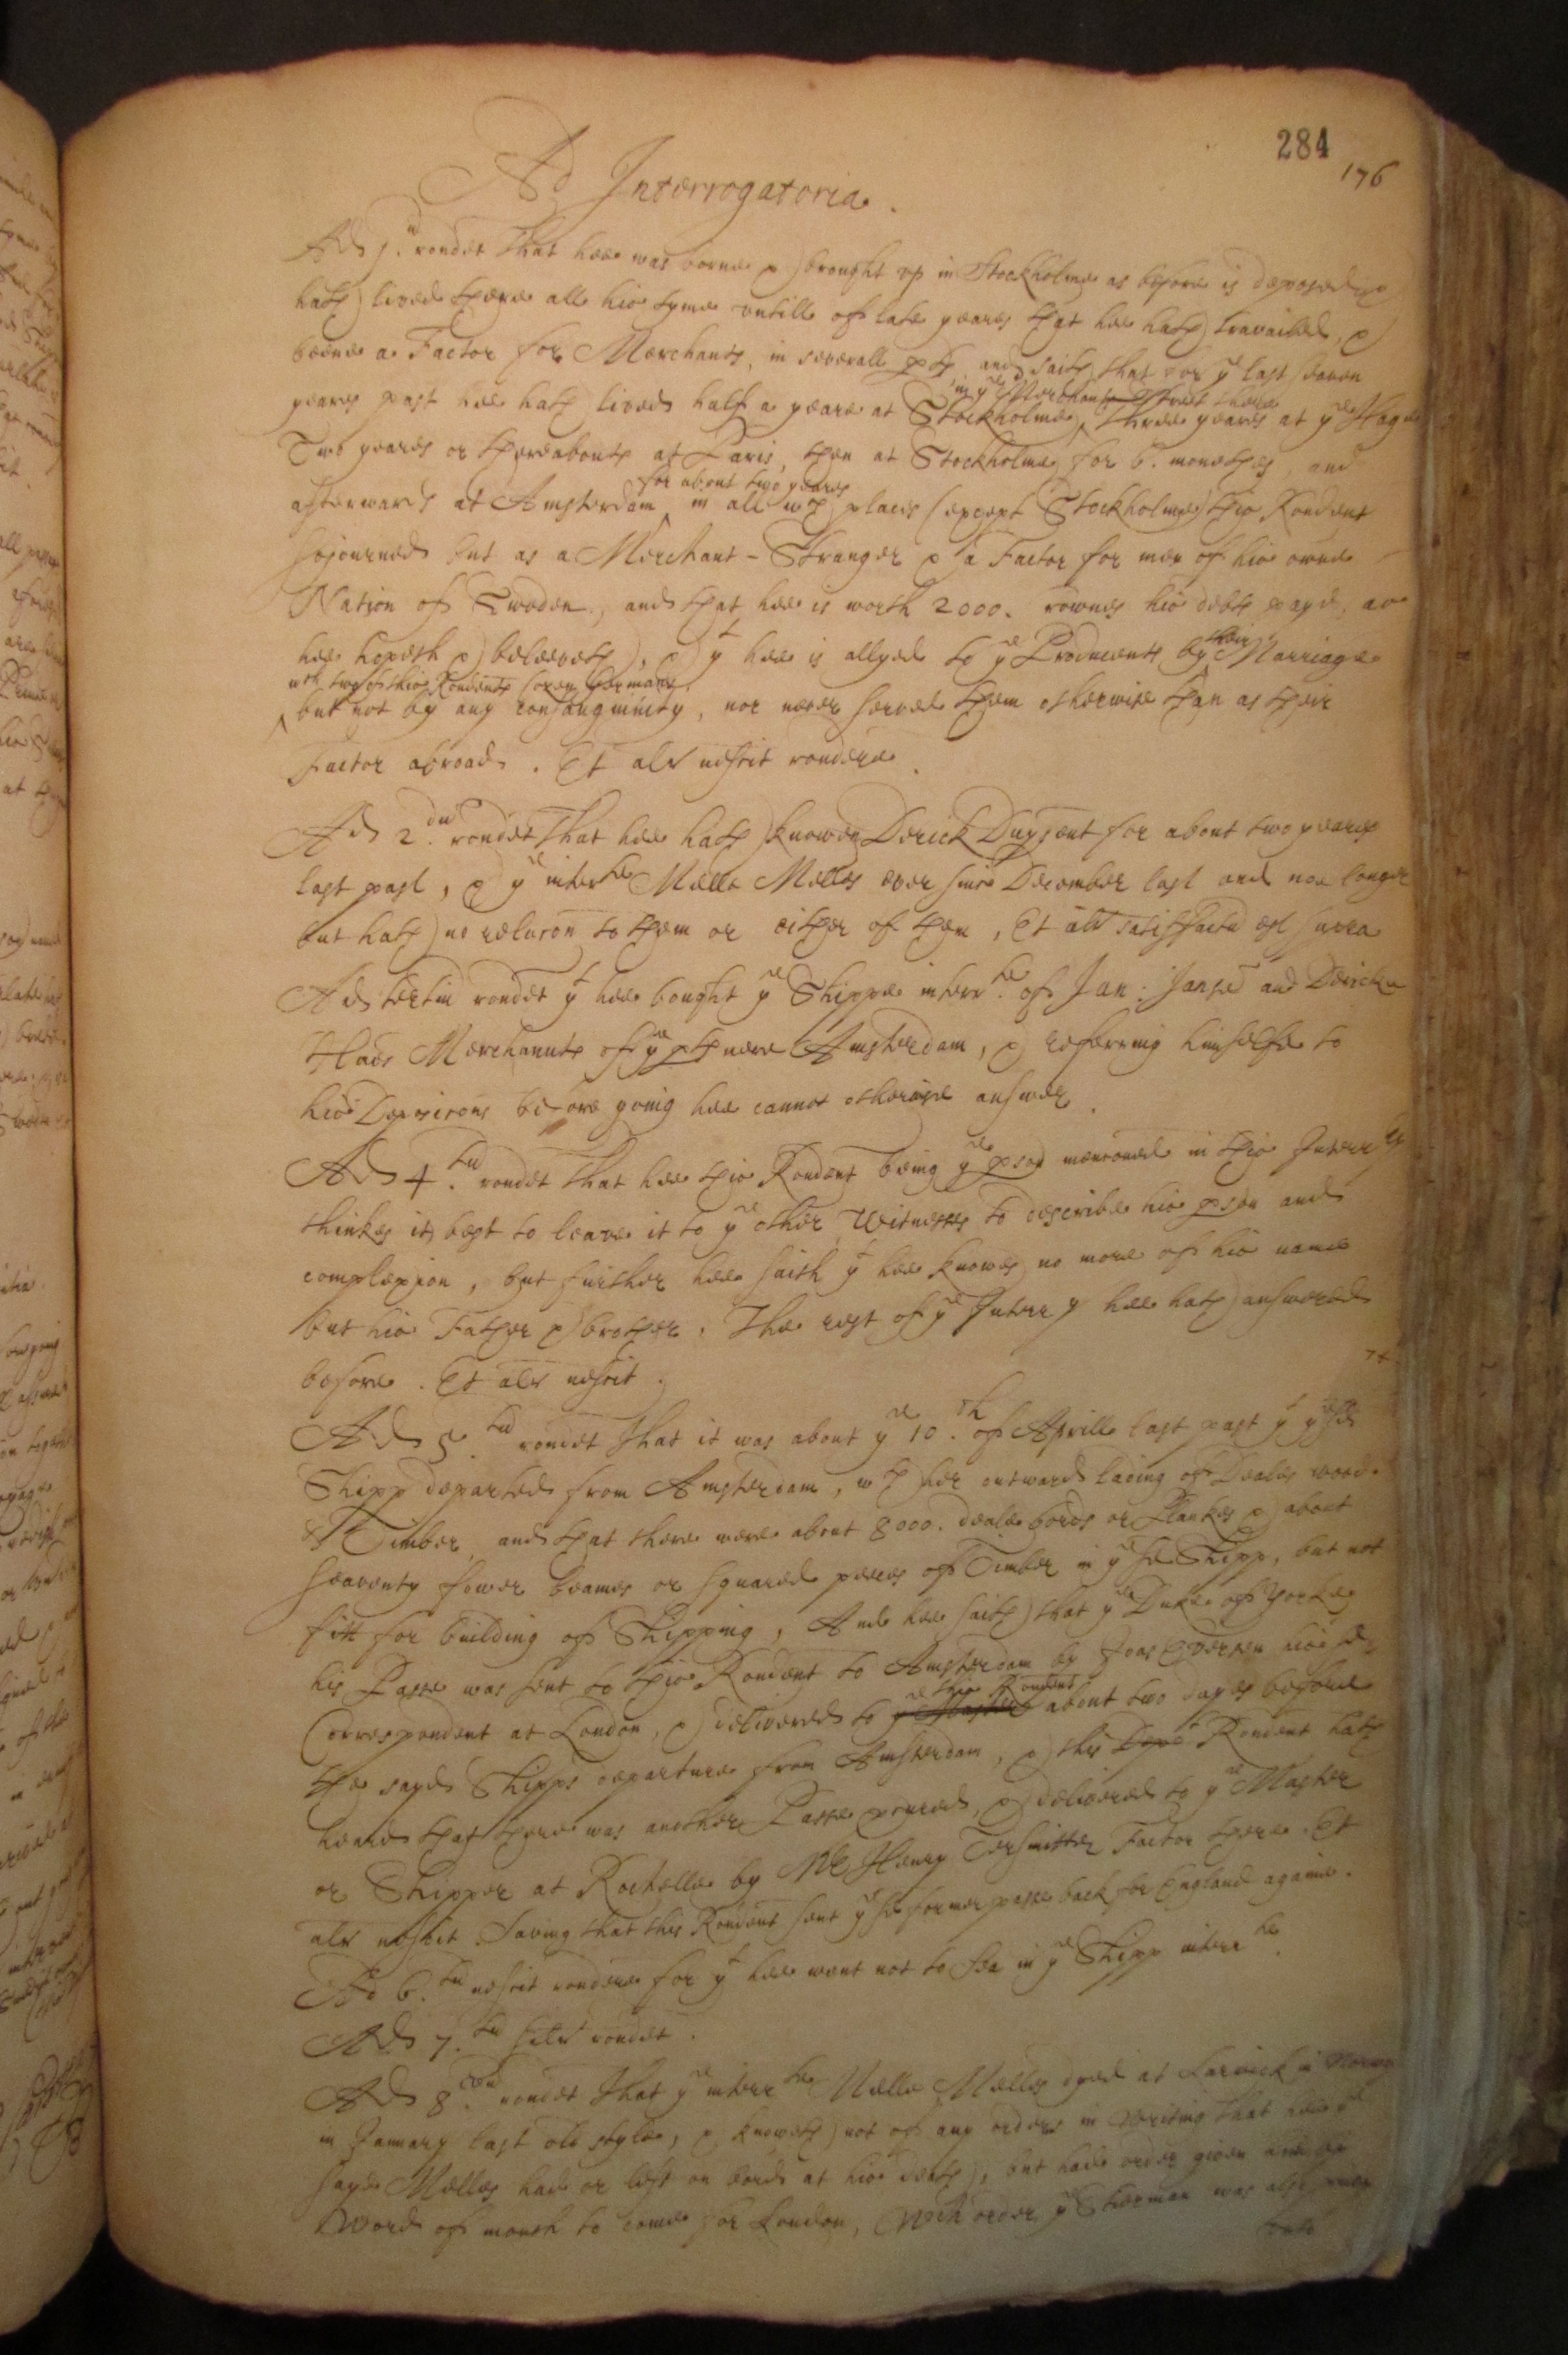 284
176
Ad Interrogatoria.
Ad 1.um rondet that hee was borne & brought vp in Stockholme as before is deposed, &
hath lived there all his tyme vntill of late yeares that hee hath travailed, &
beene a Factor for Merchants, in severall pts, and saith that for ye last seaven
in ye Merchants Street there
yeares past hee hath lived half a yeare at Stockholme, three yeares at ye Hage
Two yeares or thereabouts at Paris, then at Stockholme for 6. monethes, and
for about two yeares
afterwards at Amsterdam in all wch places (except Stockholme) this Rondent
sojourned but as a Merchant-Stranger & a Factor for men of his owne
Nation of Sweden, and that hee is worth 2000. rownes his debts payd, as
hee hopeth & beleeveth, & yt hee is allyed to ye Producents by their Marriage
wth two of this Rondents Cozen Germans,
but not by any consanguinity, nor never served them otherwise than as their
Factor abroad. Et alr nescit rondere.
Ad 2.dum rondet that hee hath knowen Derick Duysent for about two yeares
last past, & ye interrte Melle Melles ever since December last and noe longer
but hath no relacon to them or either of them, Et alr satisfactu est supra
Ad tertiu rondet yt hee bought ye Shippe interrte of Jan: Janse and Derick
Haes Merchants of ye pts neere Amsterdam, & referring himselfe to
his Deposicons before going hee cannot otherwise answer.
Ad 4.tum rondet that hee this Rondent being ye pson menconed in this Interry
thinkes it best to leave it to ye other Witnesses to describe his pson and
complexion, but further hee saith yt hee knowes no more of his name
but his Father & brother. The rest of ye Interry hee hath answered
before. Et alr nescit.
Ad 5.tum rondet that it was about ye 10.th of Aprill last past yt ye sd
Shipp departed from Amsterdam, wth her outward lading of Deales wood
& Timber, and that there were about 8000. deale bords or Plankes & about
seaventy fower beames or squared peeces of Timber in ye sd Shipp, but not
fitt for building of Shipping, And hee saith that ye Duke of Yorkes
his Passe was sent to this Rondent to Amsterdam by Joas Evertsen his sd
this Rondent
Correspondent at London, & delivered to ye Master about two dayes before
the sayd Shipps departure from Amsterdam, & this Dept Rondent hath
heard that there was another Passe pcured, & delivered to ye Master
or Shipper at Rochelle by Mr Henry Tersmitter Factor there. Et
alr nescit. Saving that this Rondent sent ye sd former passe back for England againe.
Ad 6.tum nescit rondere for yt hee went not to sea in ye Shipp interrte.
Ad 7.um silr rondet.
Ad 8.vum rondet that ye interrte Melle Melles dyed at Larwick in
in January last old style, & knoweth not of any orders in writing that hee ye
sayd Melles had or left on bord at his death, but had order given him by
Word of mouth to come for London, Wch order ye Steerman was also